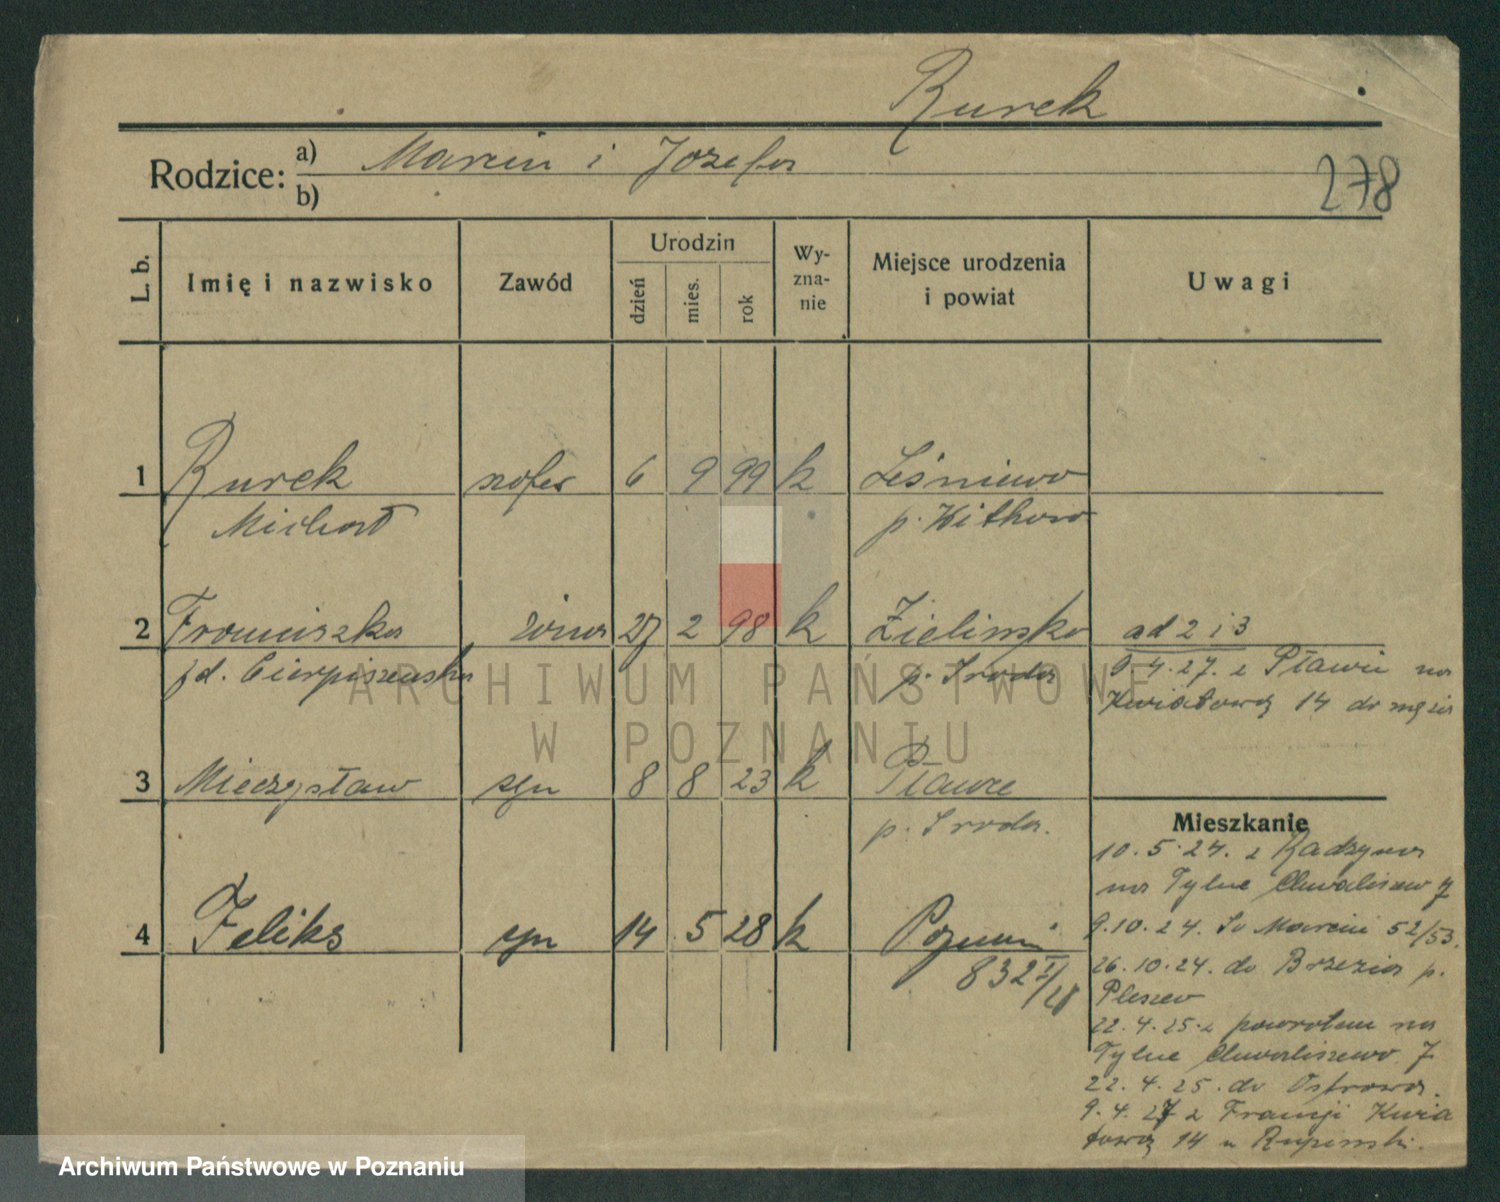 Rurek
Rodzice: a) Marcin i Józefa
b)
278
L. b. Imię i nazwisko Zawód Urodzin dzień mies. rok Wy-zna-nie Miejsce urodzenia i powiat Uwagi
1 Rurek szofer 6 9 99 k Leśniewo
Michał p. Witkowo
2 Franciszka żona 27 2 98 k Zielinsko ad 2 i 3
zd. Cierpiszewska p. Sroda 9.4.27. z Pławic na
Kwiatową 14 do męża
3 Mieczysław syn 8 8 23 k Pławce
p. Sroda.
Mieszkanie
10.5.24. z Radzyna
na Tylne Chwaliszew 7
4 Feliks syn 14 5 28 k Poznań 9.10.24. Sw Marcin 52/53.
832 I/28 26.10.24. do Brzezia p.
Pleszew
22.4.25. z powrotem na
Tylne Chwaliszewo 7
22.4.25. do Ostrowa.
9.4.27 z Francji Kwia
tową 14 u Rupinski.
ARCHIWUM PAŃSTWOWE
W POZNANIU
Archiwum Państwowe w Poznaniu